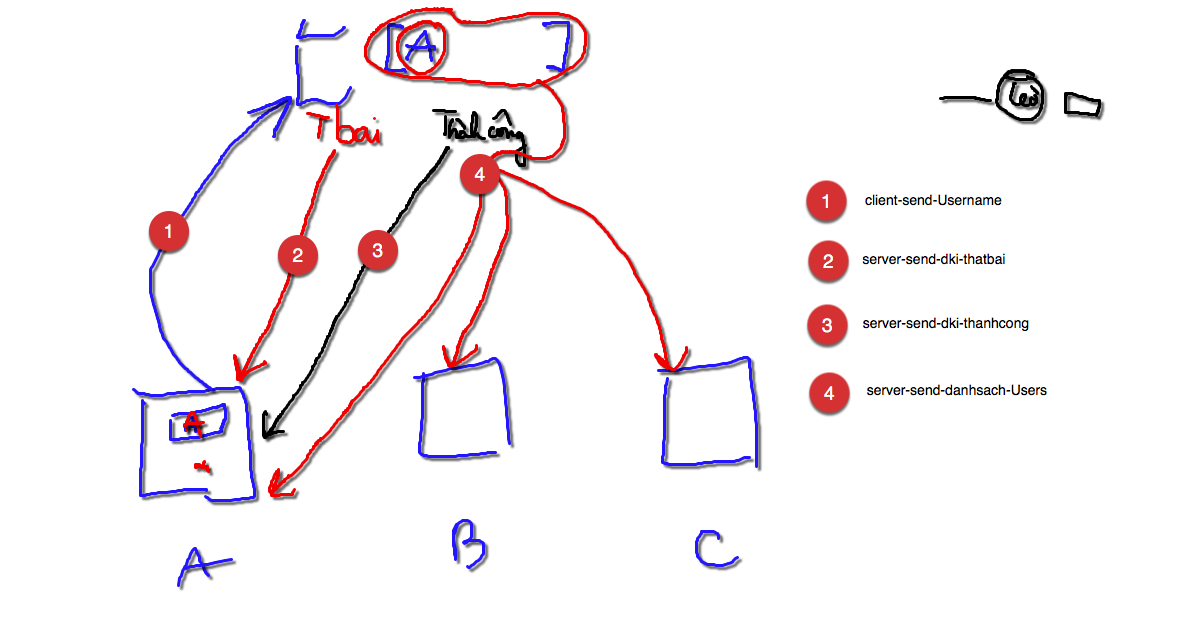 A
Tbai
Thành công
Leo
4
1
client-send-Username
1
2
3
2
server-send-dki-thatbai
3
server-send-dki-thanhcong
4
server-send-danhsach-Users
A
A
B
C